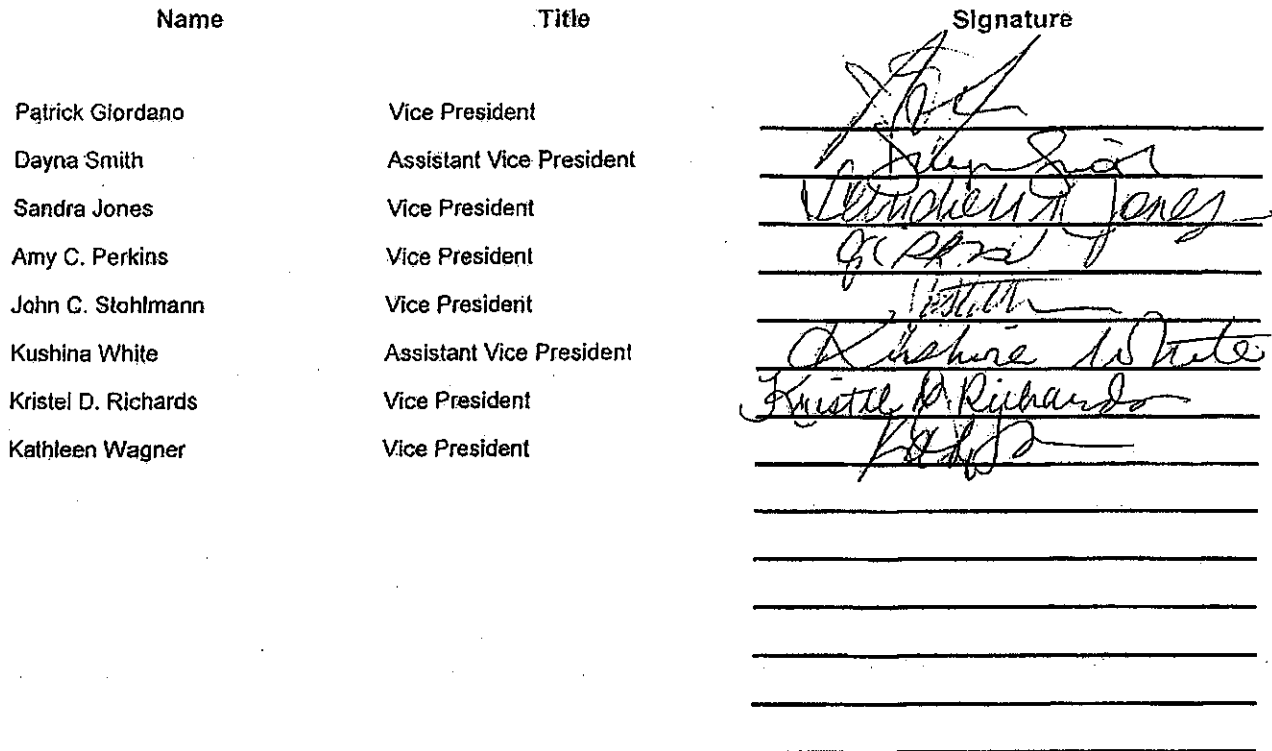 Name Title Signature
Patrick Giordano Vice President
Dayna Smith Assistant Vice President
Sandra Jones Vice President Jones
Amy C. Perkins Vice President
John C. Stohlmann Vice President
Kushina White Assistant Vice President Kushina White
Kristel D. Richards Vice President Kristel D. Richards
Kathleen Wagner Vice President